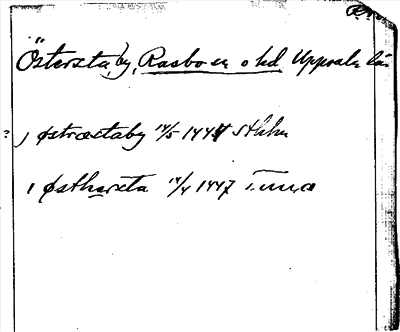 Östersta, by, Rasbo sn o hd Uppsala län
? , østrætaby 14/5 1447 Sthlm
, østhæreta 14/4 1447 Tuna